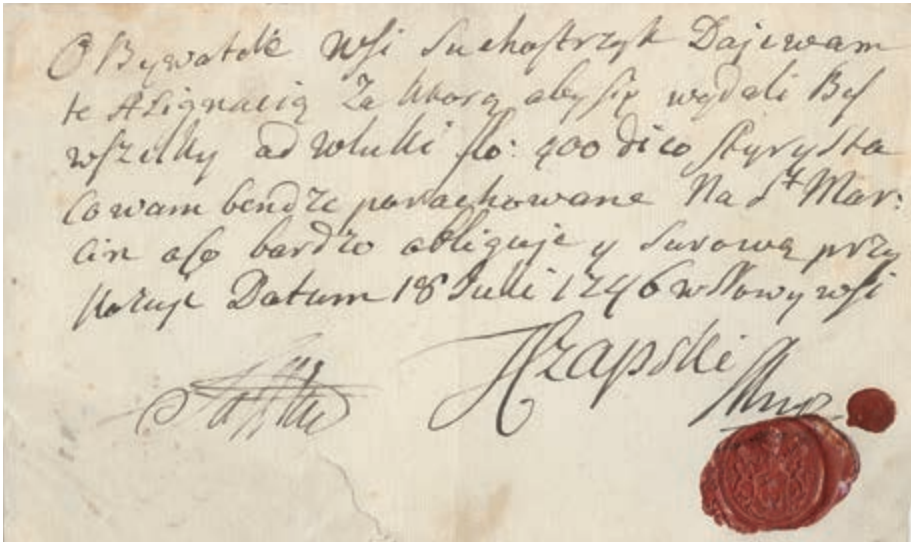 OBywatele Wsi Suchostrzyk Dajewam
te ASignacią Za ktorą aby się wydali Bes
wszelky od wluki flo: 400 dico styrysta
Co wam bendze porachowane Na St Mar:
cin a bardzo obliguje y surowa przy
kazuje Datum 18 Julii 1746 w Nowy wsi
Czapski